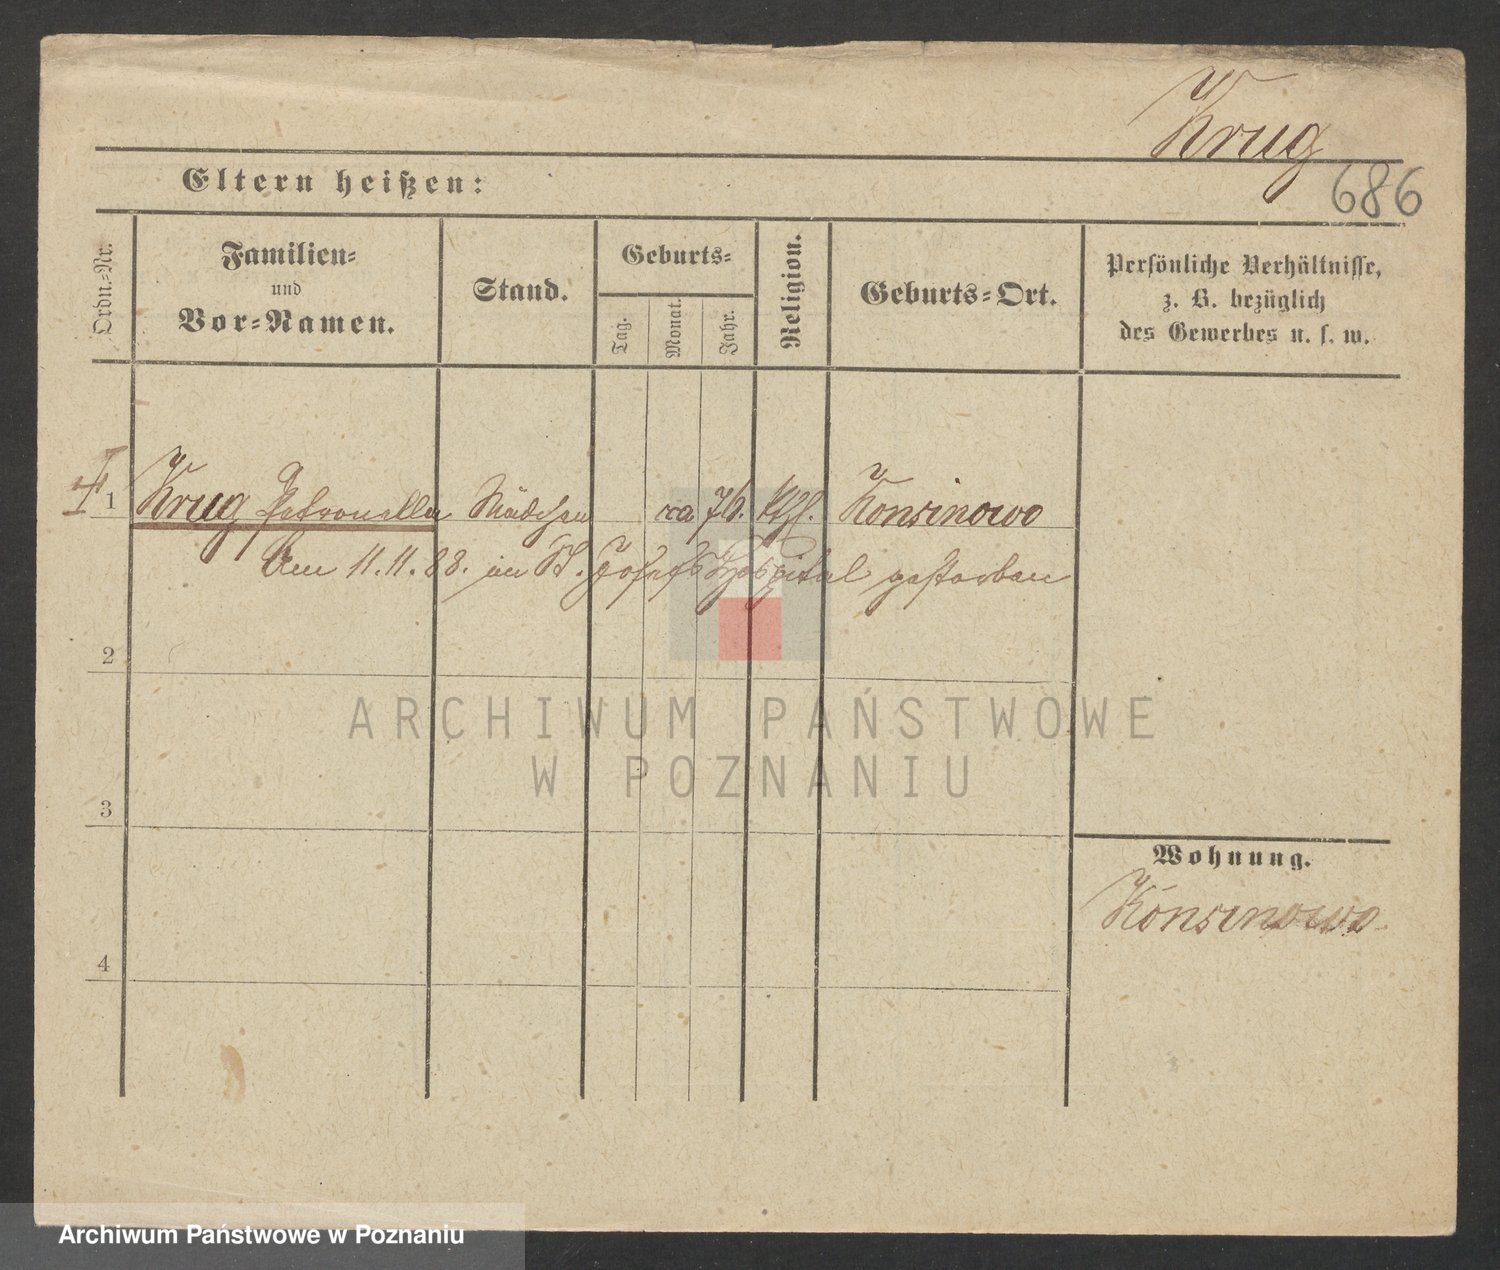 Krug
686
Eltern heißen:
Ordn.-Nr.
Familien-
und
Vor-Namen.
Stand.
Geburts-
Tag.
Monat.
Jahr.
Religion.
Geburts-Ort.
Persönliche Verhältnisse,
z. B. bezüglich
des Gewerbes u. s. w.
1 Krug Petronella Mädchen ca 76. kth. Konsinowo
Am 11.11.88. im St. Josefs Hospital gestorben
2
ARCHIWUM PAŃSTWOWE
W POZNANIU
3
Wohnung.
Konsinowo
4
Archiwum Państwowe w Poznaniu